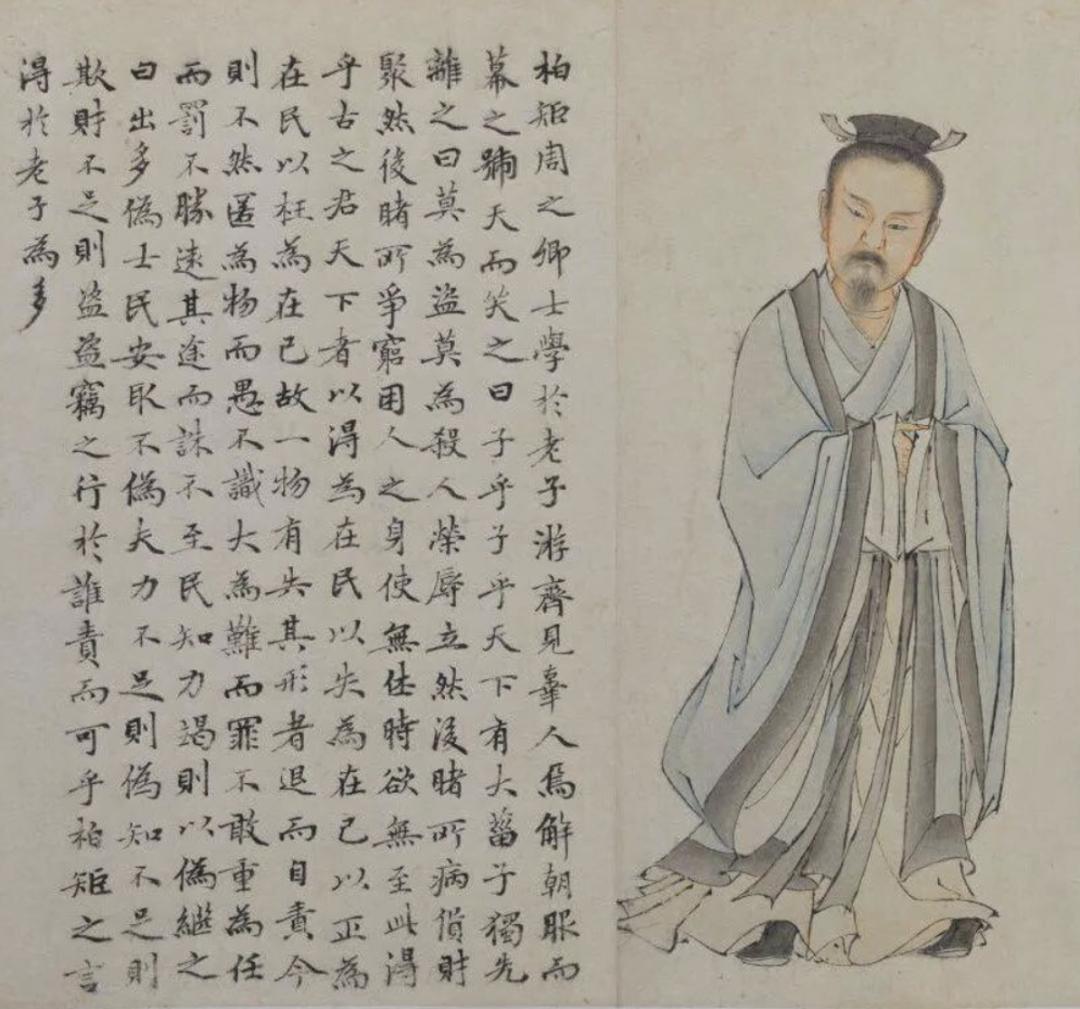 柏矩周之卿士學於老子游齊見辜人焉解朝服而
幕之號天而笑之曰子乎子乎天下有大菑子獨先
離之曰莫為盜莫為殺人榮辱立然後睹所病貨財
聚然後睹所爭窮困人之身使無休時欲無至此得
乎古之君天下者以得為在民以失為在己以正為
在民以枉為在己故一物有失其形者退而自責今
則不然匿為物而愚不識大為難而罪不敢重為任
而罰不勝遠其途而誅不至民知力竭則以偽繼之
日出多偽士民安取不偽夫力不足則偽知不足則
欺財不足則盜盜竊之行於誰責而可乎柏矩之言
得於老子為多